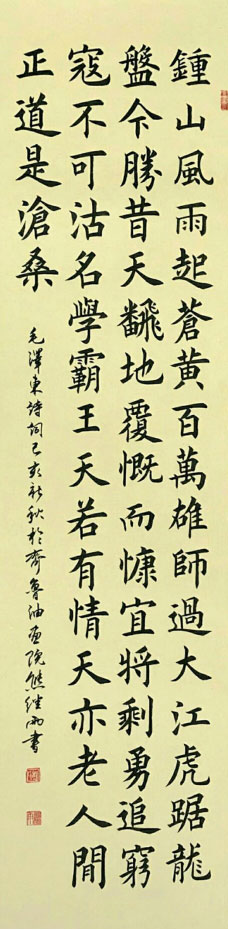 鍾山風雨起蒼黃百萬雄師過大江虎踞龍
盤今勝昔天飜地覆慨而慷宜將剩勇追窮
寇不可沽名學霸王天若有情天亦老人間
正道是滄桑
毛澤東詩詞己亥初秋於齊魯油画院熊继雨書